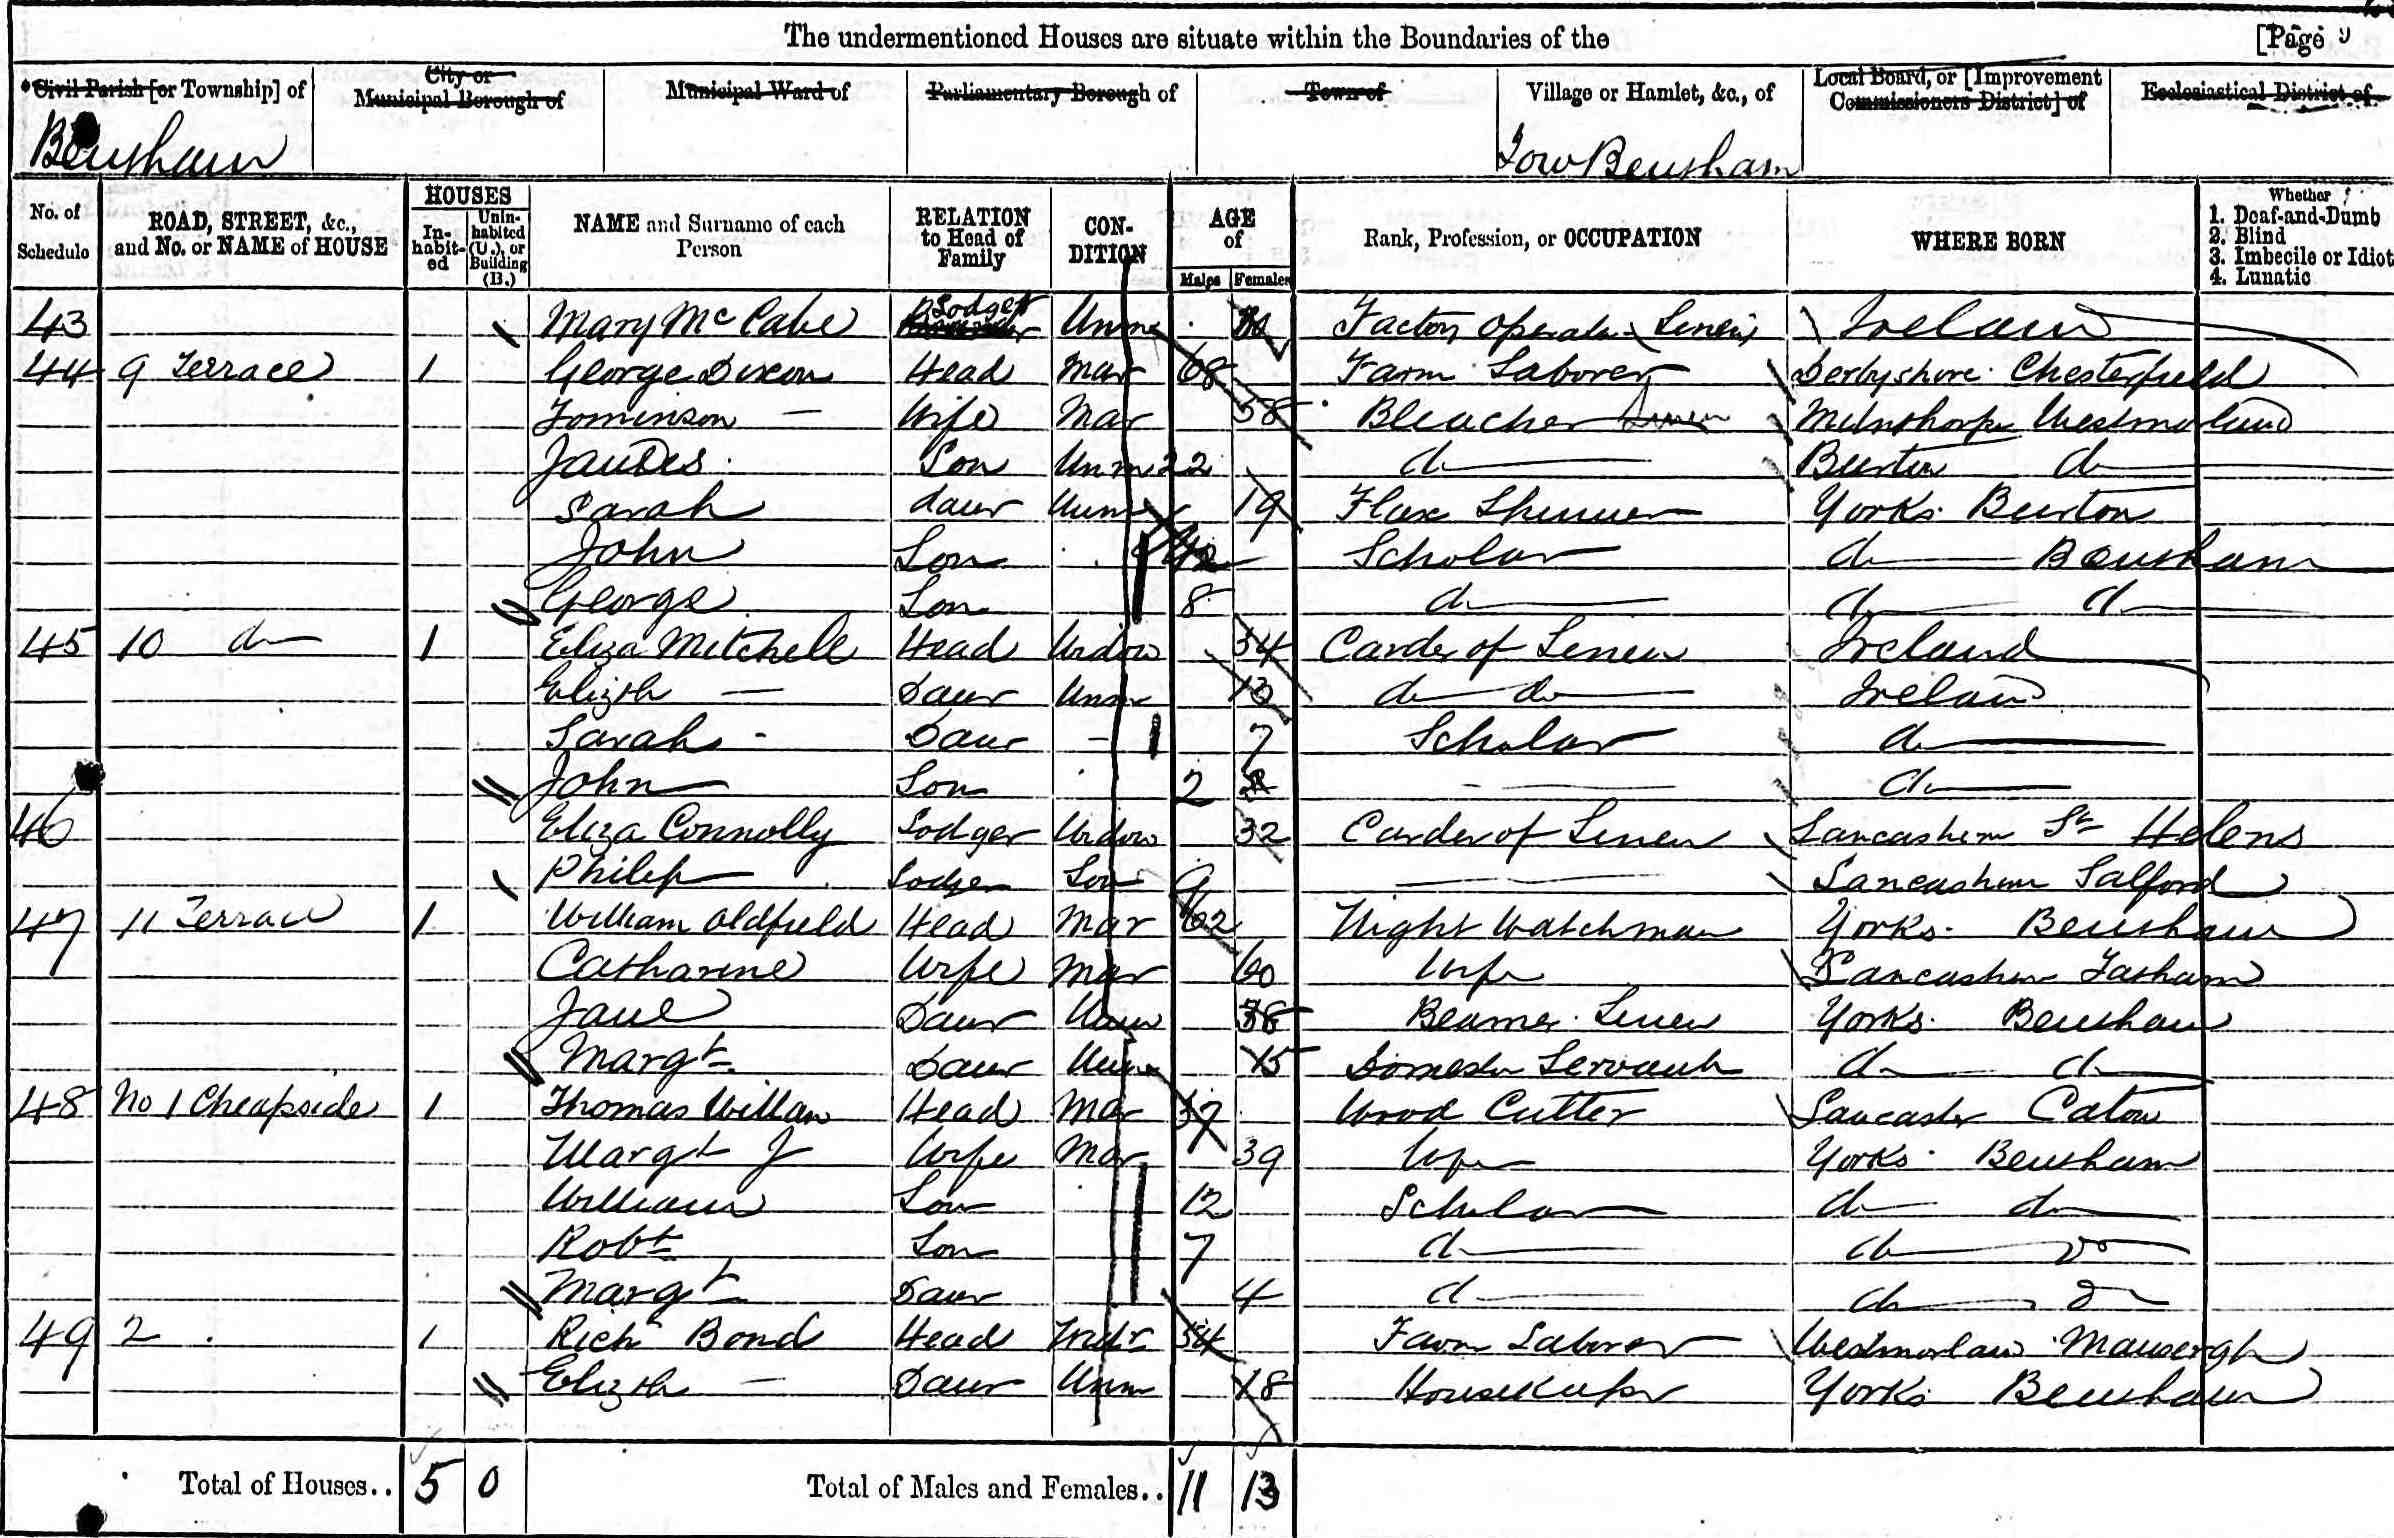 The undermentioned Houses are situate within the Boundaries of the [Page 9
Civil Parish [or Township] of City or Municipal Borough of Municipal Ward of Parliamentary Borough of Town of Village or Hamlet, &c., of Local Board, or [Improvement Commissioners District] of Ecclesiastical District of
Bentham Low Bentham
No. of Schedule ROAD, STREET, &c., and No. or NAME of HOUSE HOUSES In-habit-ed Unin-habited (U.), or Building (B.) NAME and Surname of each Person RELATION to Head of Family CON-DITION AGE of Males Females Rank, Profession, or OCCUPATION WHERE BORN Whether 1. Deaf-and-Dumb 2. Blind 3. Imbecile or Idiot 4. Lunatic
43 Mary Mc Cabe Lodger Unm Factory Operate (Linen) Ireland
44 9 Terrace 1 George Dixon Head Mar 68 Farm Laborer Derbyshire Chesterfield
Tominson — Wife Mar 58 Bleacher Linen Milnthorpe Westmorland
James Son Unm 22 do Burton do
Sarah Daur Unm 19 Flax Yorks Burton
John Son Scholar do Bentham
George Son 8 do do do
45 10 do 1 Eliza Mitchell Head Widow 34 Carder of Linen Ireland
Elizth — Daur Unm 13 do do Ireland
Sarah - Daur - 7 Scholar do
John Son 2 do
46 Eliza Connolly Lodger Widow 32 Carder of Linen Lancashire St Helens
Philip Lodger Son 9 Lancashire Salford
47 11 Terrace 1 William Oldfield Head Mar 62 Night Watchman Yorks Bentham
Catharine Wife Mar 60 Wife Lancashire Tatham
Jane Daur Unm 38 Beamer Linen Yorks Bentham
Margt Daur Unm 15 Domestic Servant do do
48 No 1 Cheapside 1 Thomas Willan Head Mar 37 Wood Cutter Lancaster Caton
Margt J Wife Mar 39 Wife Yorks Bentham
William Son 12 Scholar do do
Robt Son 7 do do do
Margt Daur 4 do do do
49 2 1 Richd Bond Head Widr 54 Farm Laborer Westmorland Mansergh
Elizth — Daur Unm 18 Housekeeper Yorks Bentham
Total of Houses.. 5 0 Total of Males and Females.. 11 13